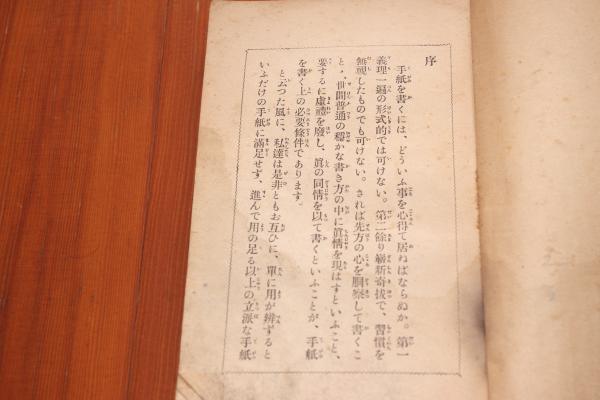 序
手紙を書くには、どういふ事を心得て居ねばならぬか。第一
義理一遍の形式的では可けない。第二餘り嶄新奇拔で、習慣を
無視したものでも可けない。されば先方の心を洞察して書くこ
と、世間普通の穩かな書き方の中に眞情を現はすといふこと、
要するに虛禮を廢し、眞の同情を以て書くといふことが、手紙
を書く上の必要條件であります。
と云つた風に、私達は是非ともお互ひに、單に用が辨ずると
いふだけの手紙に滿足せず、進んで用の足る以上の立派な手紙